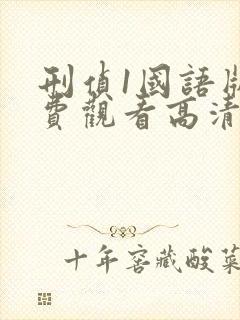 刑偵1國語版
費觀看高清
十年窖藏酸菜